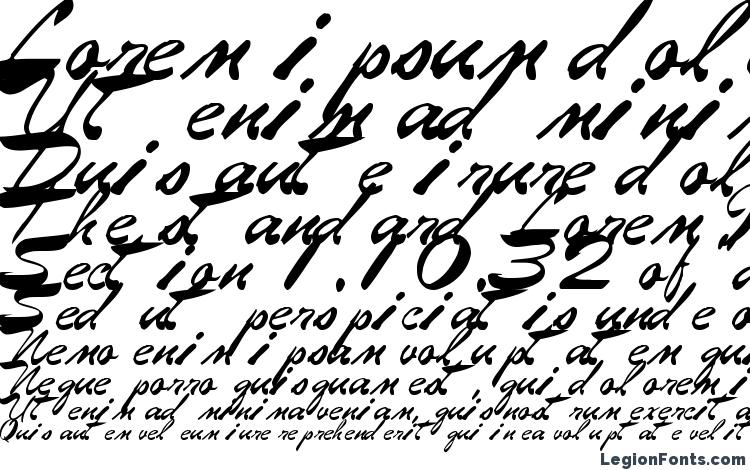 Lorem ipsum dol
Ut enim ad mini
Duis aute irure dol
The standard Lorem
Section 1.10.32 of "d
Sed ut perspiciatis unde o
Nemo enim ipsam voluptatem qui
Neque porro quisquam est, qui dolorem i
Ut enim ad minima veniam, quis nostrum exercita
Quis autem vel eum iure reprehenderit qui in ea voluptate velit
LegionFonts.com